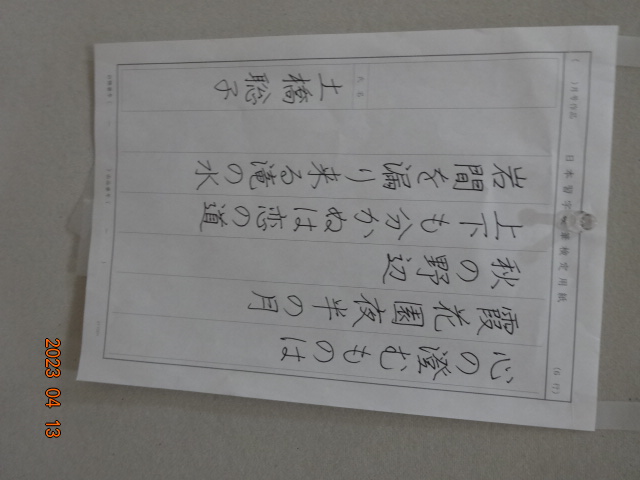 日本習字 筆検定用紙
(6行)
心の澄むものは
霞花園夜半の月
秋の野辺
上下も分かぬは恋の道
岩間を漏り来る滝の水
氏名
土橋聡子
2023 04 13